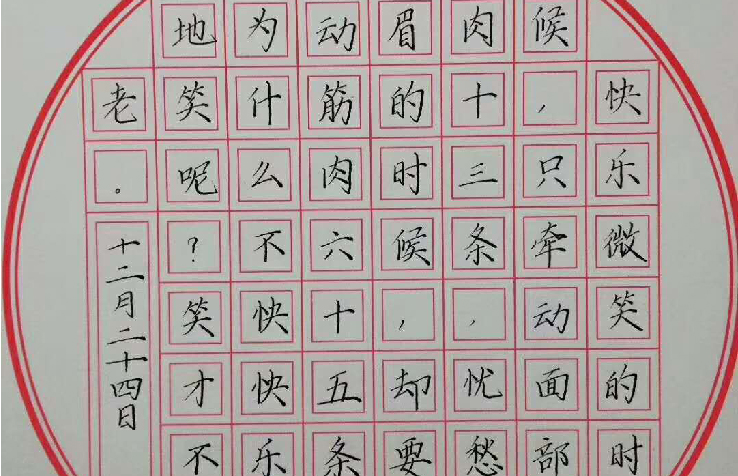 快乐微笑的时
候，只牵动面部
肉十三条，忧愁
眉的时候，却要
动筋肉六十五条
为什么不快快乐
地笑呢？笑才不
老。
十二月二十四日